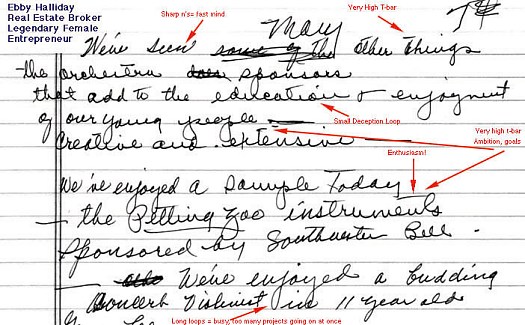 Ebby Halliday
Real Estate Broker
Legendary Female
Entrepreneur
Sharp n's= fast mind
Very High T-bar
7#
Many
We've seen some of the other things
the orchestra does sponsors
that add to the education & enjoyment
Small Deception Loop
of our young people
Very high t-bar
Ambition, goals
Creative and extensive
Enthusiasm!
We've enjoyed a sample Today
the Petting zoo instruments
sponsored by Southwestern Bell
We've enjoyed a budding
Concert Violinist in 11 year old
Long loops = busy, too many projects going on at once